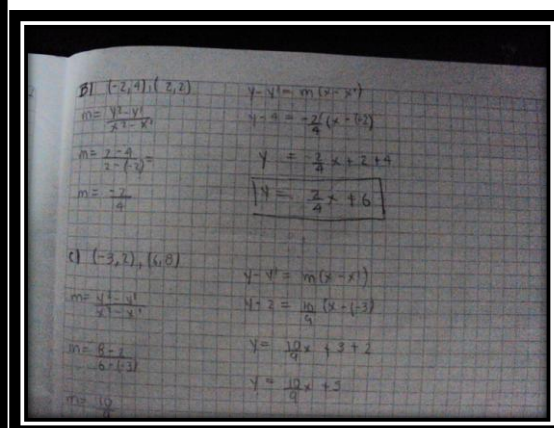 B) (-2,4),(2,2)
m= y²-y¹/x²-x¹
m= 2-4/2-(-2)=
m= -2/4
y-y¹= m(x-x¹)
y-4 = -2/4(x-(-2)
y = -2/4x+2+4
y = 2/4x+6
c) (-3,2),(6,8)
m= y²-y¹/x²-x¹
m= 8-2/6-(-3)
m= 10/9
y-y¹= m(x-x¹)
y-2 = 10/9(x-(-3)
y= 10/9x+3+2
y = 10/9x+5